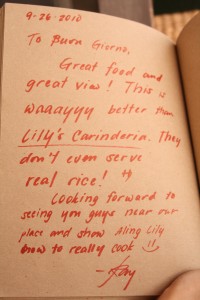 9-26-2010
To Buon Giorno,
Great food and
great view! This is
waaayyy better than
Lilly's Carinderia. They
don't even serve
real rice!
Looking forward to
seeing you guys near our
place and show Aling Lily
how to really cook